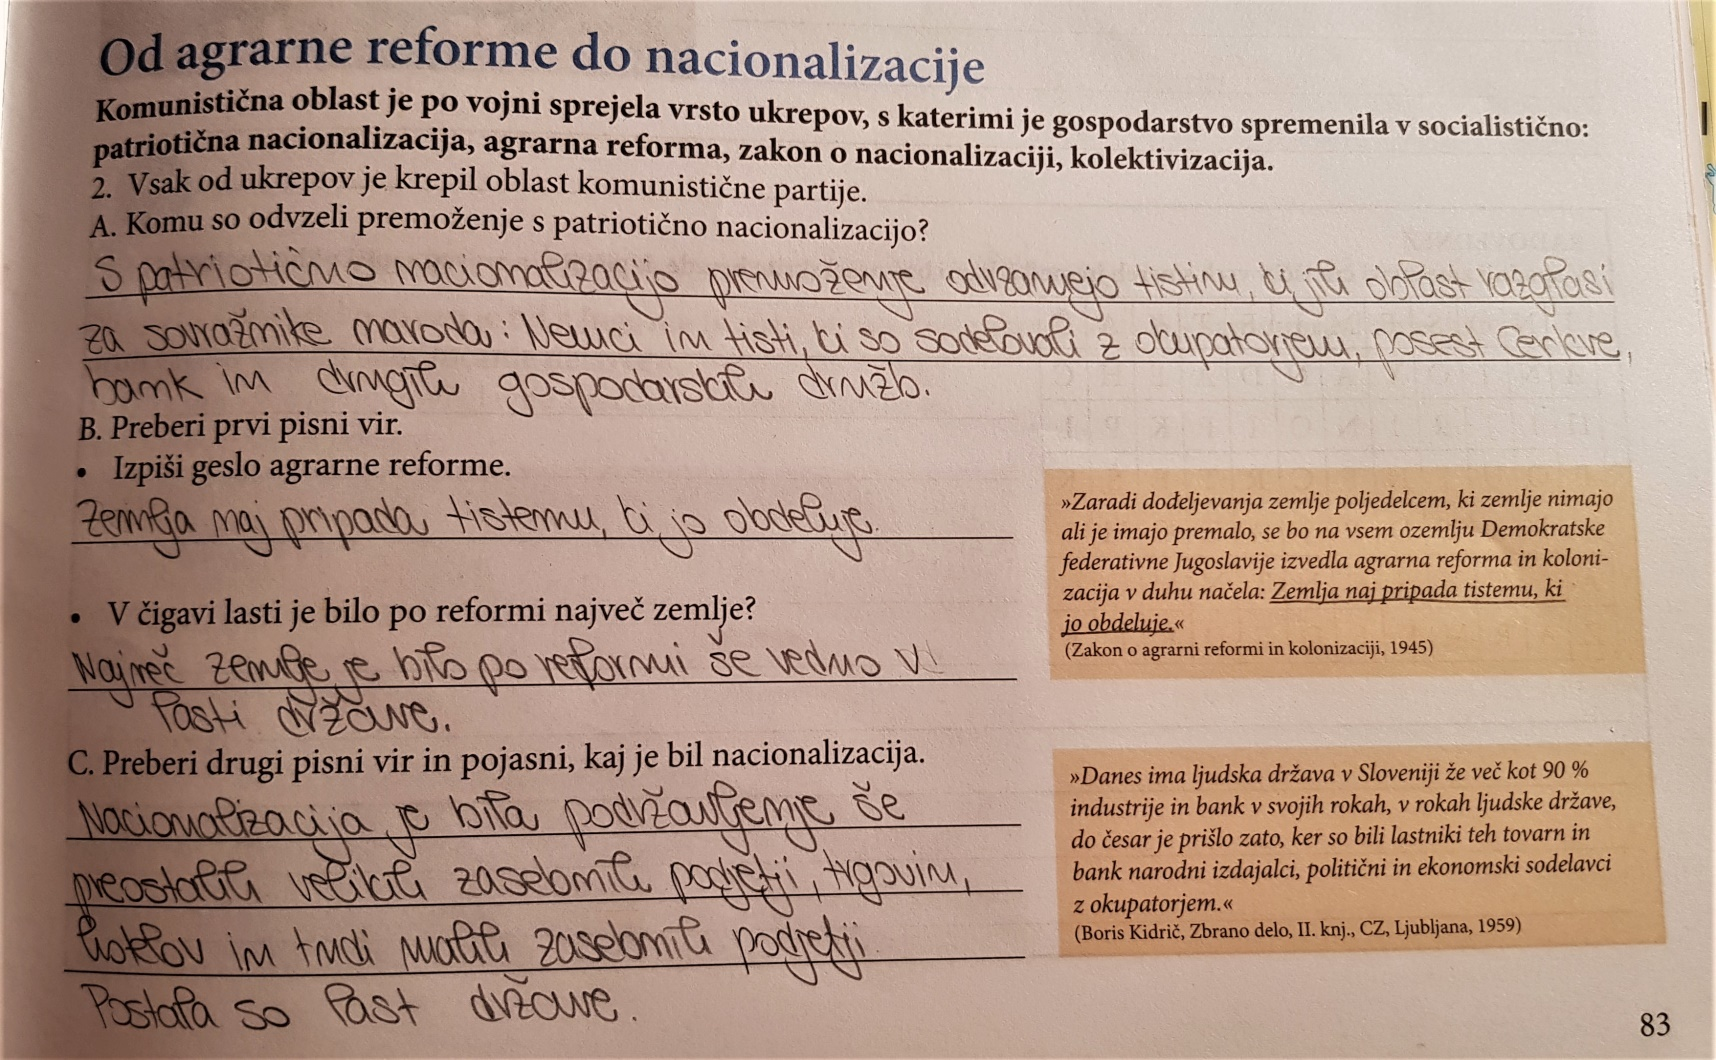 Od agrarne reforme do nacionalizacije
Komunistična oblast je po vojni sprejela vrsto ukrepov, s katerimi je gospodarstvo spremenila v socialistično:
patriotična nacionalizacija, agrarna reforma, zakon o nacionalizaciji, kolektivizacija.
2. Vsak od ukrepov je krepil oblast komunistične partije.
A. Komu so odvzeli premoženje s patriotično nacionalizacijo?
S patriotično nacionalizacijo premoženje odvzamejo tistim, ki jih oblast razglasi
za sovražnike naroda: Nemci in tisti, ki so sodelovali z okupatorjem, posest Cerkve,
bank in drugih gospodarskih družb.
B. Preberi prvi pisni vir.
• Izpiši geslo agrarne reforme.
Zemlja naj pripada tistemu, ki jo obdeluje.
• V čigavi lasti je bilo po reformi največ zemlje?
Največ zemlje je bilo po reformi še vedno v
lasti države.
C. Preberi drugi pisni vir in pojasni, kaj je bil nacionalizacija.
Nacionalizacija je bila podržavljenje še
preostalih velikih zasebnih podjetji, trgovin,
hotelov in tudi malih zasebnih podjetji.
Postala so last države.
»Zaradi dodeljevanja zemlje poljedelcem, ki zemlje nimajo
ali je imajo premalo, se bo na vsem ozemlju Demokratske
federativne Jugoslavije izvedla agrarna reforma in koloni-
zacija v duhu načela: Zemlja naj pripada tistemu, ki
jo obdeluje.«
(Zakon o agrarni reformi in kolonizaciji, 1945)
»Danes ima ljudska država v Sloveniji že več kot 90 %
industrije in bank v svojih rokah, v rokah ljudske države,
do česar je prišlo zato, ker so bili lastniki teh tovarn in
bank narodni izdajalci, politični in ekonomski sodelavci
z okupatorjem.«
(Boris Kidrič, Zbrano delo, II. knj., CZ, Ljubljana, 1959)
83